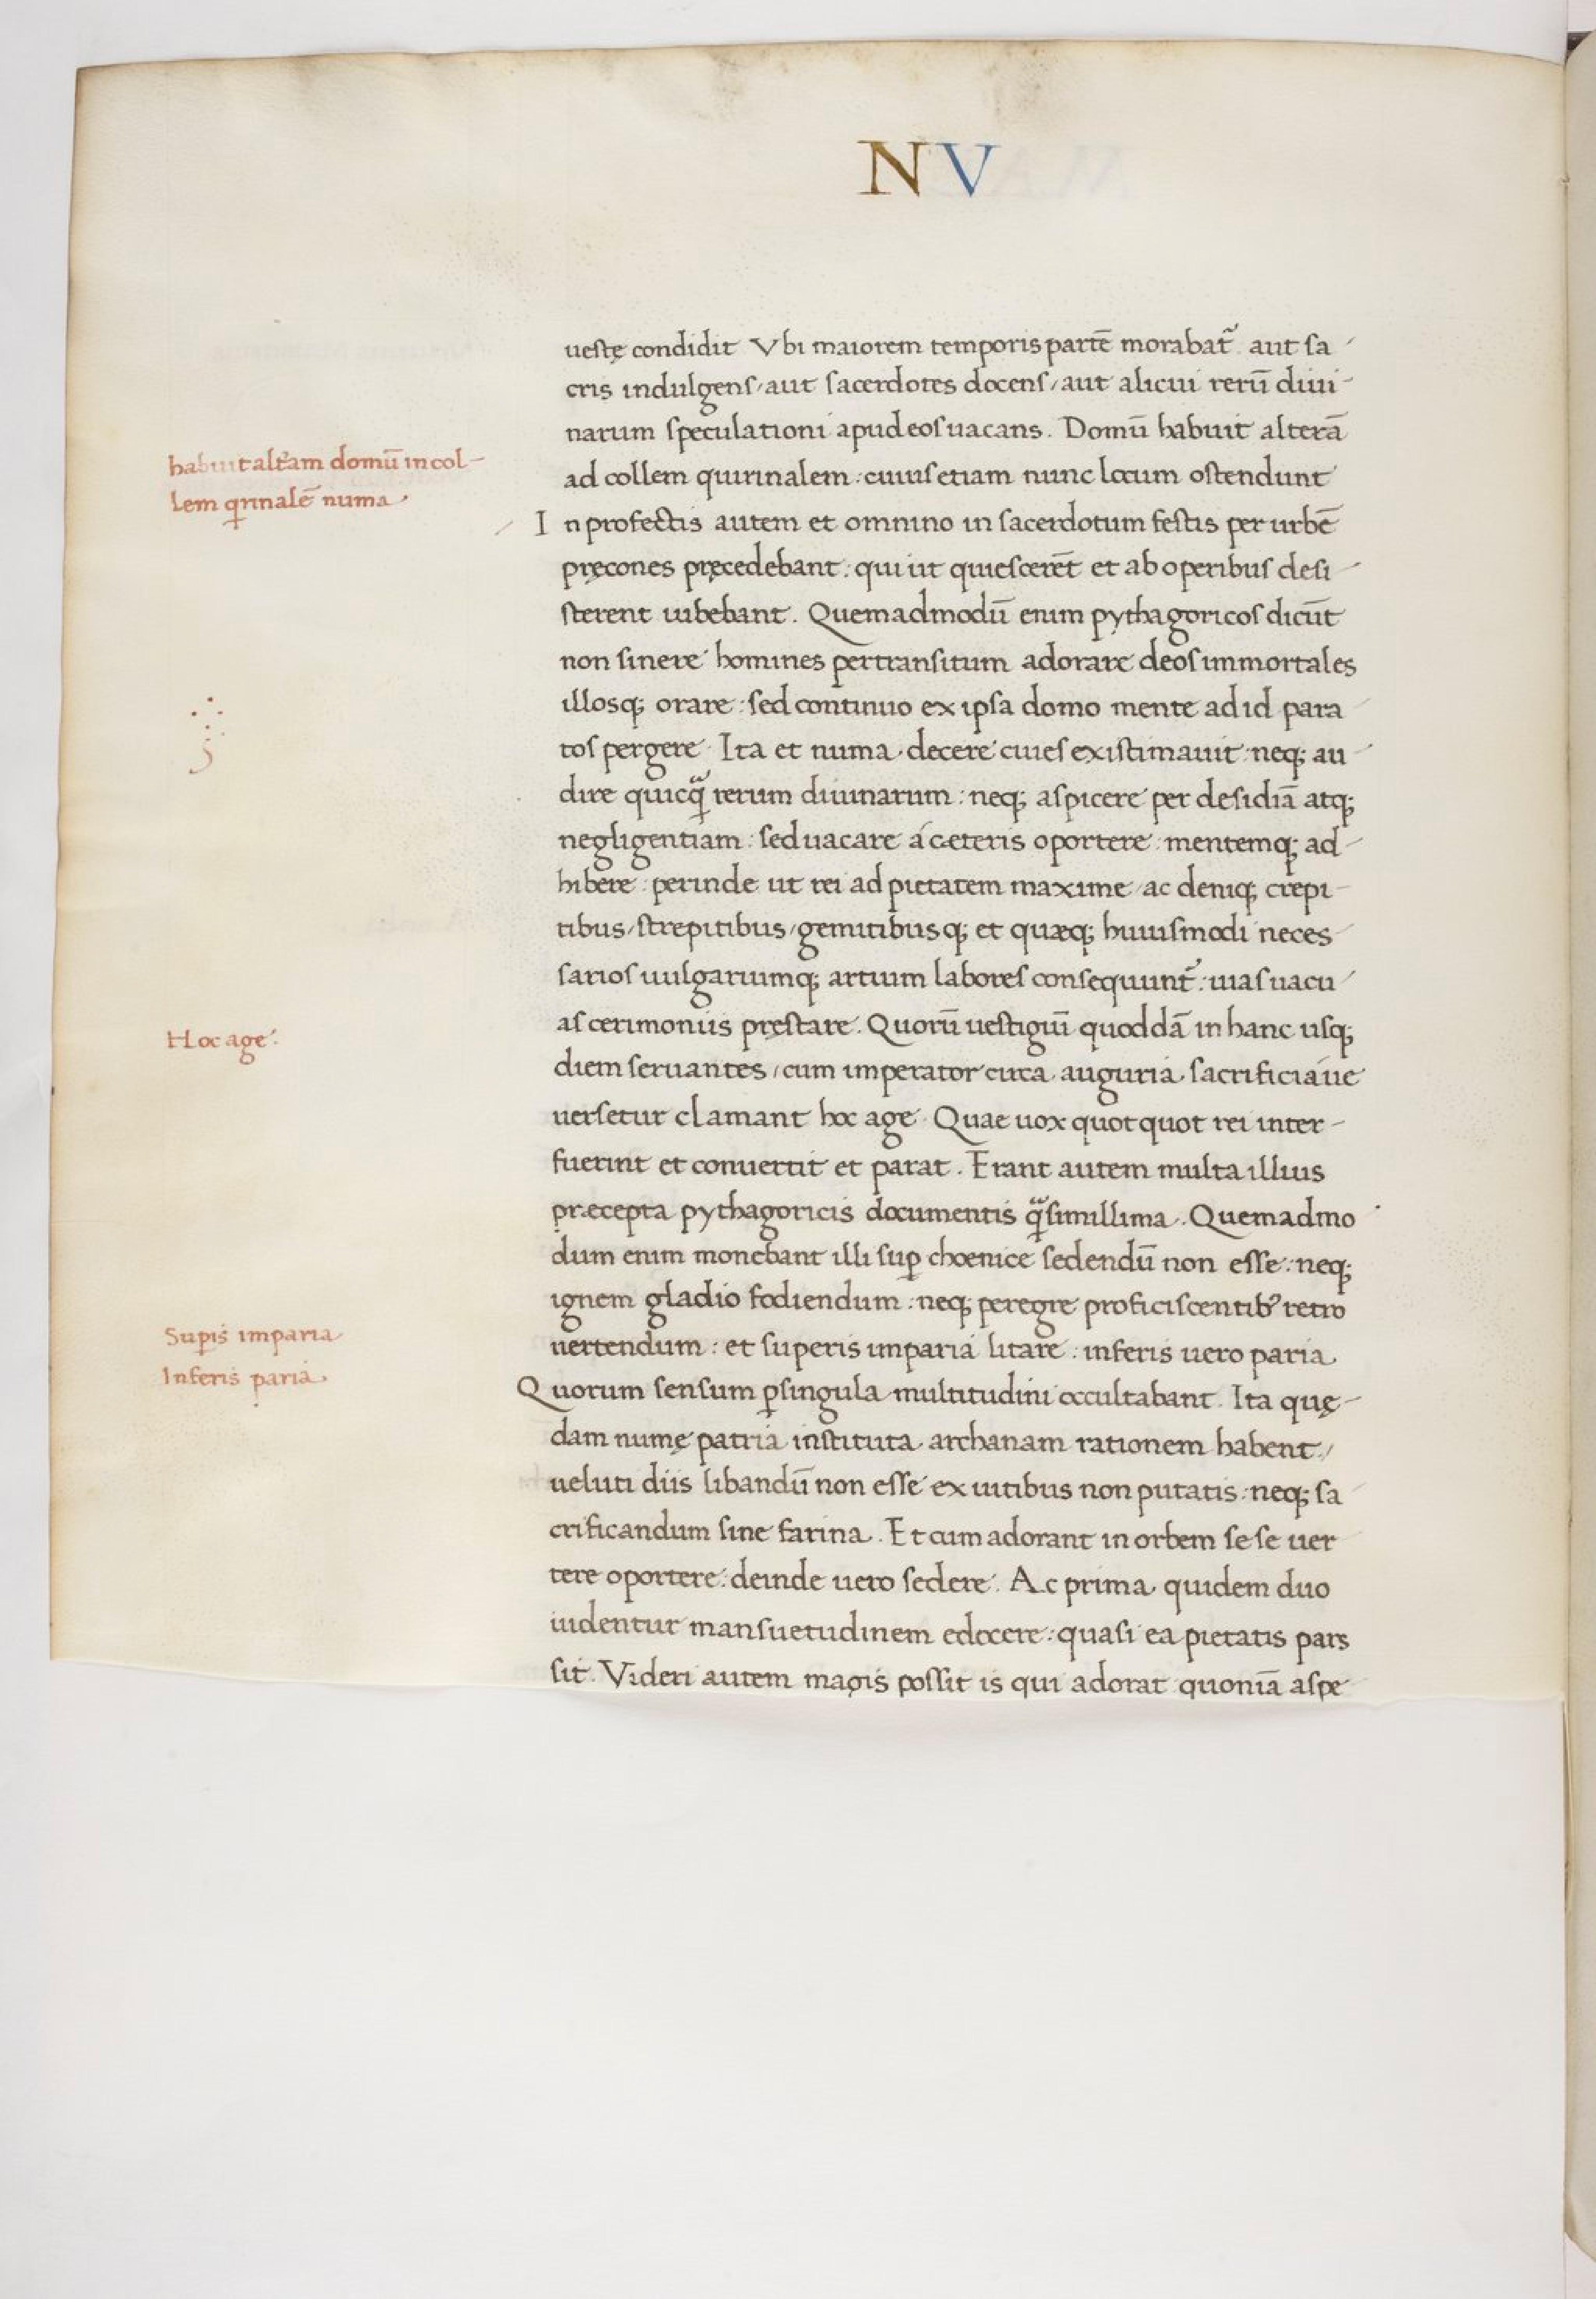 NV
ueste condidit Vbi maiorem temporis partē morabat᷑ aut sa-
cris indulgens, aut sacerdotes docens, aut alicui rerū diui-
narum speculationi apud eos uacans. Domū habuit alterā
habuit alt᷑am domū in col-
ad collem quirinalem: cuius etiam nunc locum ostendunt
lem qrinalē numa.
In profectis autem et omnino in sacerdotum festis per urbē
pręcones pręcedebant: qui ut quiescerēt et ab operibus desi-
sterent iubebant. Quemadmodū enim pythagoricos dicūt
non sinere homines per transitum adorare deos immortales
illosq; orare: sed continuo ex ipsa domo mente ad id para
tos pergere. Ita et numa decere ciues existimauit: neq; au-
dire quicꝗ̃ rerum diuinarum: neq; aspicere per desidiā atq;
negligentiam: sed uacare á cæteris oportere: mentemq; ad-
hibere: perinde ut rei ad pietatem maxime, ac deniq; crepi-
tibus, strepitibus, gemitibusq; et quæq; huiusmodi neces-
sarios uulgariumq; artium labores consequunt᷑: uias uacu-
as cerimoniis pręstare. Quorū uestigiū quoddā in hanc usq;
Hoc age.
diem seruantes, cum imperator circa auguria sacrificiáue
uersetur clamant hoc age. Quae uox quotquot rei inter-
fuerint et conuertit et parat. Erant autem multa illius
præcepta pythagoricis documentis ꝗ̃simillima. Quemadmo
dum enim monebant illi suꝑ choenice sedendū non esse: neq;
ignem gladio fodiendum: neq; peregre proficiscentib᾽ retro
Suꝑis imparia
uertendum: et superis imparia litare: inferis uero paria
Inferis paria.
Quorum sensum ꝑ singula multitudini occultabant. Ita quę-
dam numę patria instituta archanam rationem habent,
ueluti diis libandū non esse ex uitibus non putatis: neq; sa
crificandum sine farina. Et cum adorant in orbem sese uer
tere oportere: deinde uero sedere. Ac prima quidem duo
uidentur mansuetudinem edocere: quasi ea pietatis pars
sit. Videri autem magis possit is qui adorat quoniā aspe